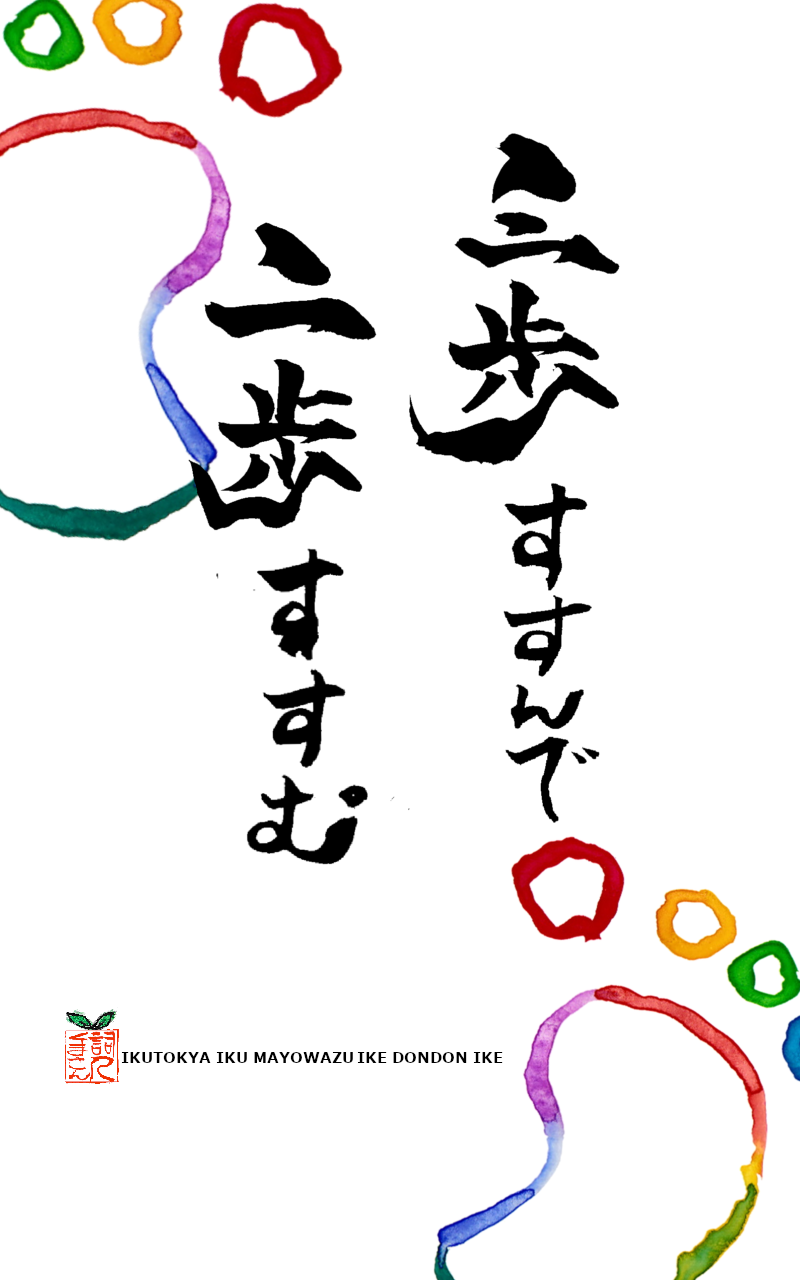 三歩すすんで
二歩すすむ
IKUTOKYA IKU MAYOWAZU IKE DONDON IKE